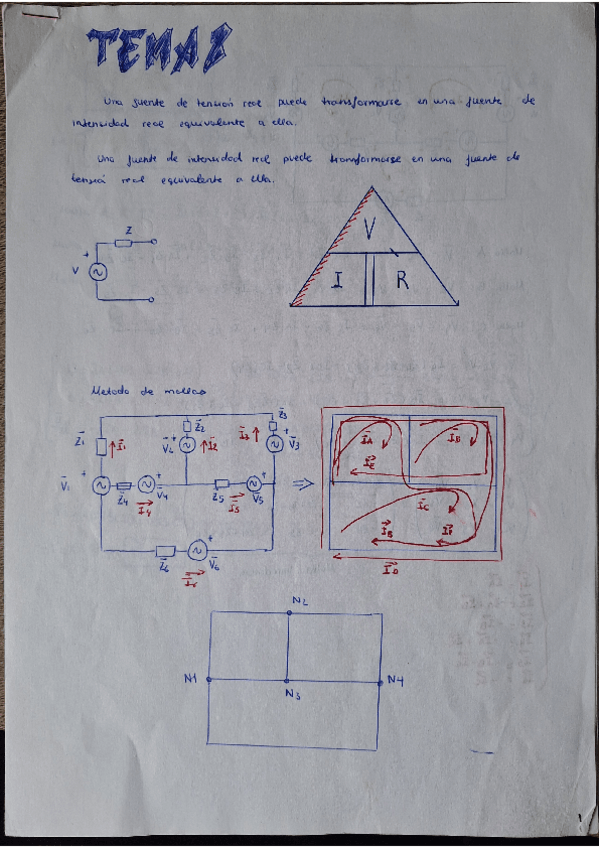 TEMA 2
Una fuente de tensión real puede transformarse en una fuente de
intensidad real equivalente a ella.
Una fuente de intensidad real puede transformarse en una fuente de
tensión real equivalente a ella.
Z
+
V
V
I R
Metodo de mallas
Z1 I1 Z2 V2 + I2 I3 Z3 + V3
V1 + Z4 + V4 I4 Z5 I5 + V5
Z6 + V6
⇒
IA IB
IE
IC
IB IF
ID
N2
N1 N3 N4